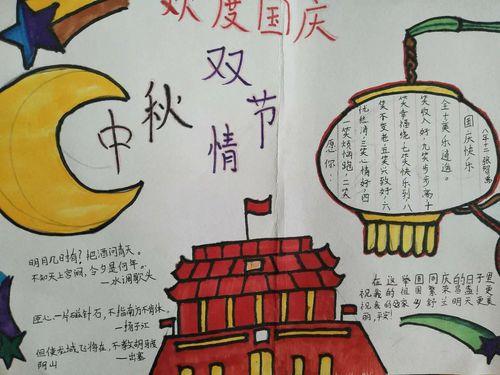 欢度国庆
双节
中秋
情
国庆快乐
愿你:
一笑烦恼跑,二笑
忧愁消,三笑心情好,四
笑不变老,五笑兴致好,六
笑幸福绕,七笑快乐到,八
笑收入好,九笑步步高十
全十美乐逍遥。
明月几时有?把酒问青天。
不知天上宫阙,今夕是何年。
—水调歌头
臣心一片磁针石,不指南方不肯休。
—扬子江
但使龙城飞将在,不教胡马度
阴山 —出塞
在这举国同庆的日子里
祝我的祖国繁荣昌盛!更
祝我的家乡舒兰明天更美
丽,平安!